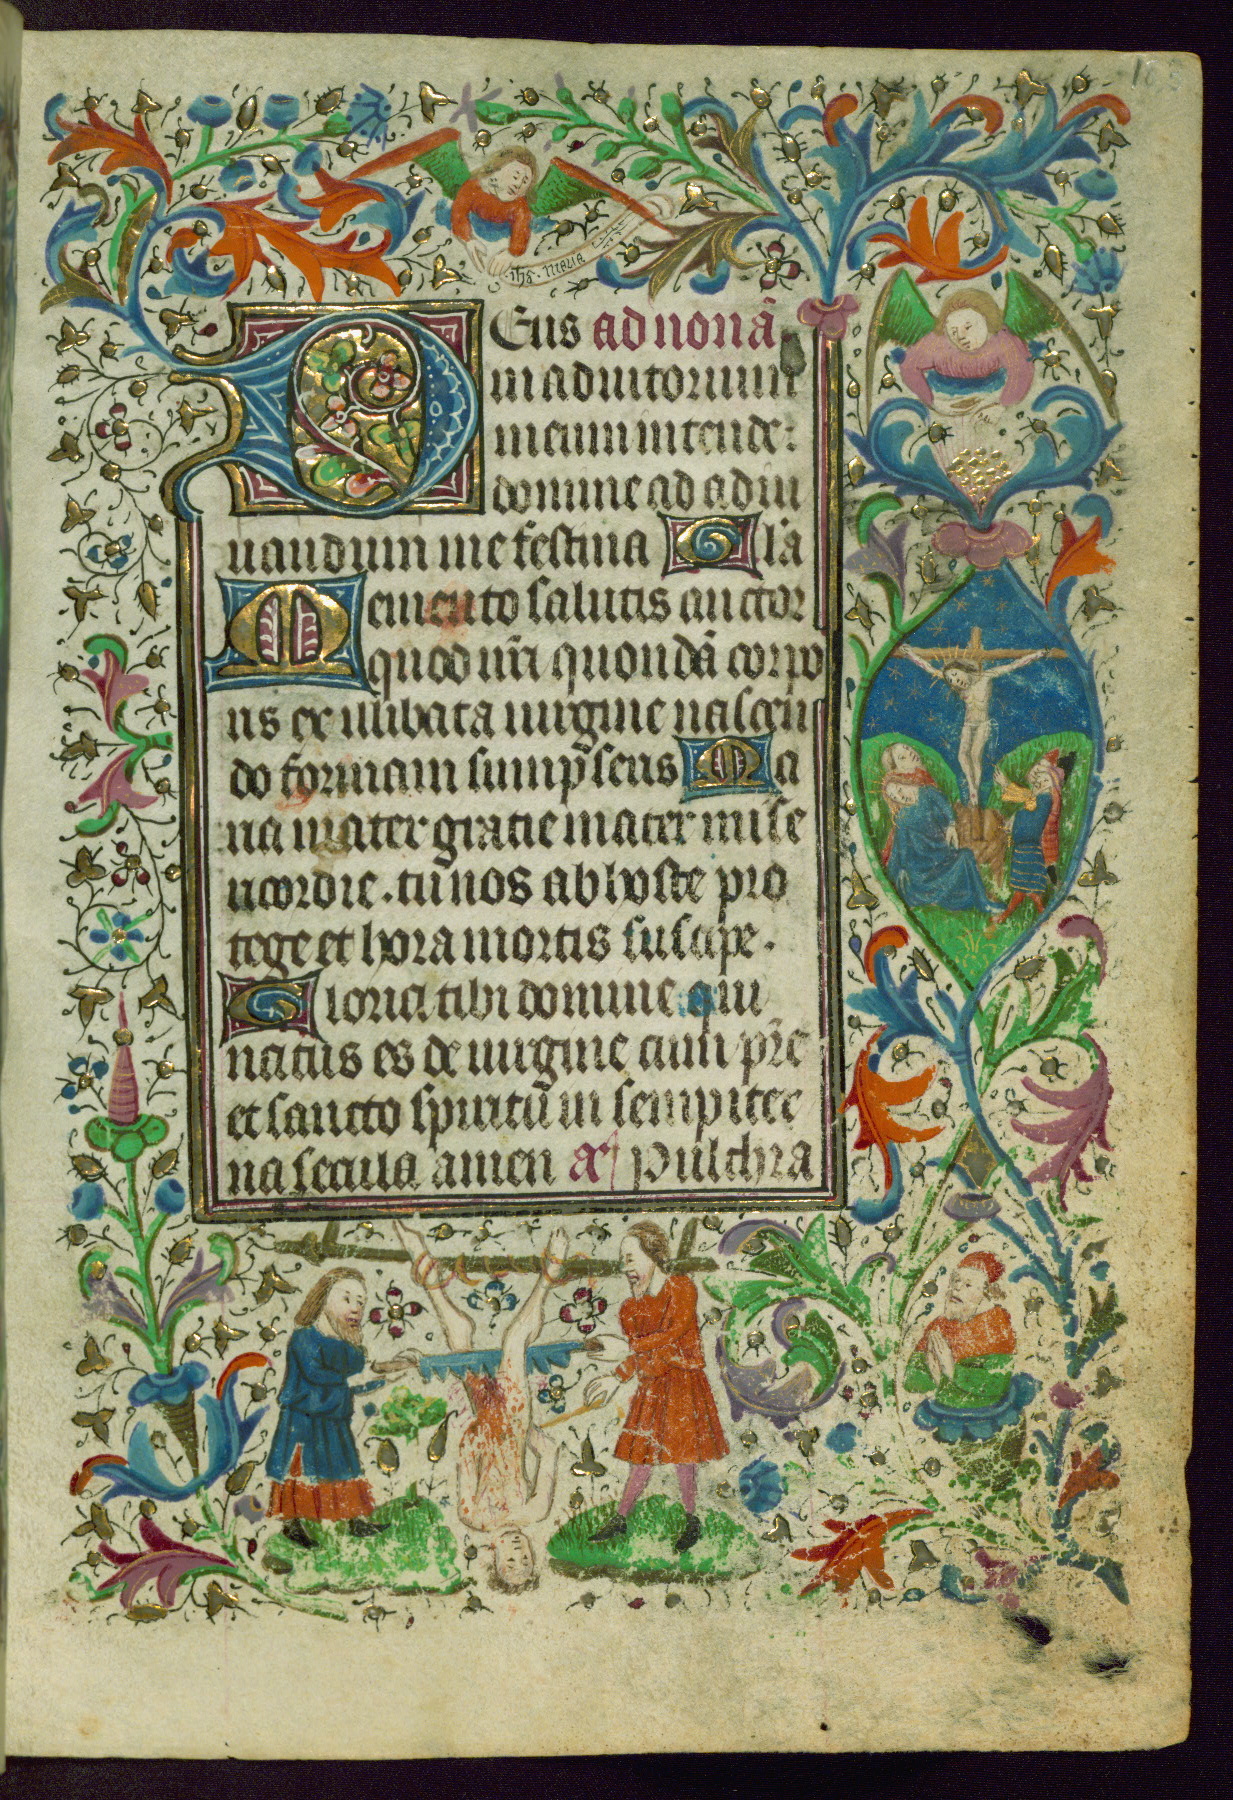 ihs. maria
Deus ad nonã
in adiutorium
meum intende:
domine ad adiu
uandum me festina Glã
Memento salutis auctor
quod nr̃i quondã corpo
ris ex illibata uirgine nascen
do formam sumpseris Ma
ria mater gratie mater mise
ricordie. tu nos ab hoste pro
tege et hora mortis suscipe.
Gloria tibi domine qui
natus es de uirgine cum pr̃e
et sancto spiritũ in sempiter
na secula amen a Pulchra